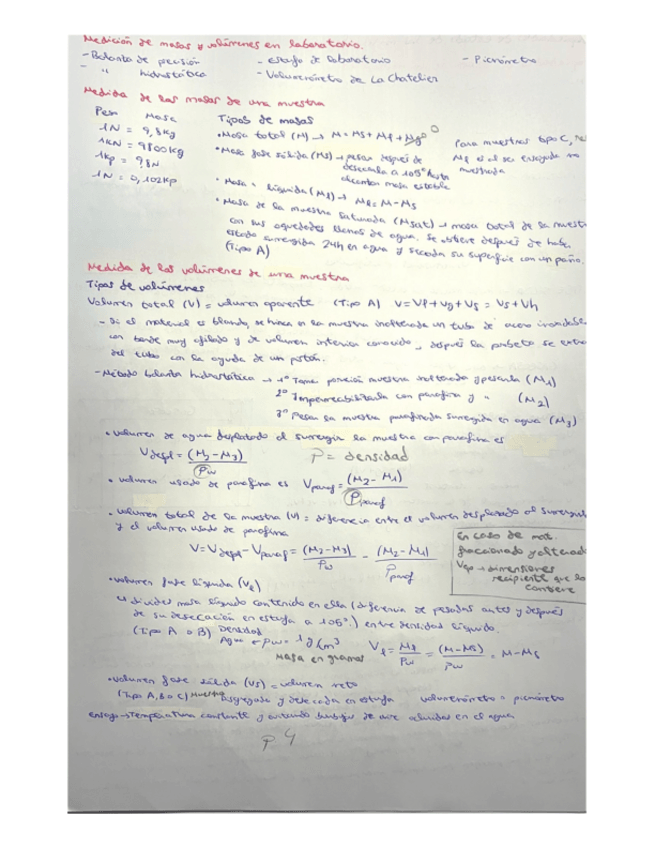 Medición de masas y volúmenes en laboratorio.
- Balanza de precisión - estufa de laboratorio - Picnómetro
- " hidrostática - Volumenómetro de La Chatelier
Medida de las masas de una muestra
Peso Masa Tipos de masas
1N = 9,8kg
1kN = 9800kg
1kp = 9,8N
1N = 0,102kp
• Masa total (M) → M = Ms + Ml + Mg 0
• Masa fase sólida (Ms) → pesar después de
desecarla a 105° hasta
alcanzar masa estable
Para muestras tipo C,
Ml es al ser enrasada no
mostrada
• Masa " líquida (Ml) → Ml = M - Ms
• Masa de la muestra saturada (Msat) → masa total de la
con sus oquedades llenas de agua. Se obtiene después de
estado sumergida 24h en agua y secada su superficie con un paño.
(Tipo A)
Medida de los volúmenes de una muestra
Tipos de volúmenes
Volumen total (V) = volumen aparente (Tipo A) V = Vl + Vg + Vs = Vs + Vh
- Si el material es blando, se hinca en la muestra inalterada un tubo de acero
con borde muy afilado y de volumen interior conocido, después la probeta se
del tubo con la ayuda de un pistón.
- Método balanza hidrostática → 1º Tomar porción muestra inalterada y pesarla (M1)
2º Impermeabilizarla con parafina y " (M2)
3º Pesar la muestra parafinada sumergida en agua (M3)
• volumen de agua desplazado al sumergir la muestra con parafina es
Vdespl = (M2 - M3) / ρw ρ = densidad
• volumen usado de parafina es Vparaf = (M2 - M1) / ρparaf
• volumen total de la muestra (V) = diferencia entre el volumen desplazado al
y el volumen usado de parafina
V = Vdespl - Vparaf = (M2 - M3) / ρw - (M2 - M1) / ρparaf
En caso de mat.
fraccionado y
Vap → dimensiones
recipiente que lo
contiene
• volumen fase líquida (Vl)
↳ dividir masa líquido contenido en ella (diferencia de pesadas antes y después
de su desecación en estufa a 105°.) entre densidad líquido.
(Tipo A o B) Densidad
Agua → ρw = 1 g/cm³ Vl = Ml / ρw = (M - Ms) / ρw = M - Ms
Masa en gramos
• Volumen fase sólida (Vs) = volumen neto
(Tipo A, B o C) Muestra disgregada y desecada en estufa volumenómetro o picnómetro
ensayo → temperatura constante y evitando burbujas de aire ocluidas en el agua
P 4